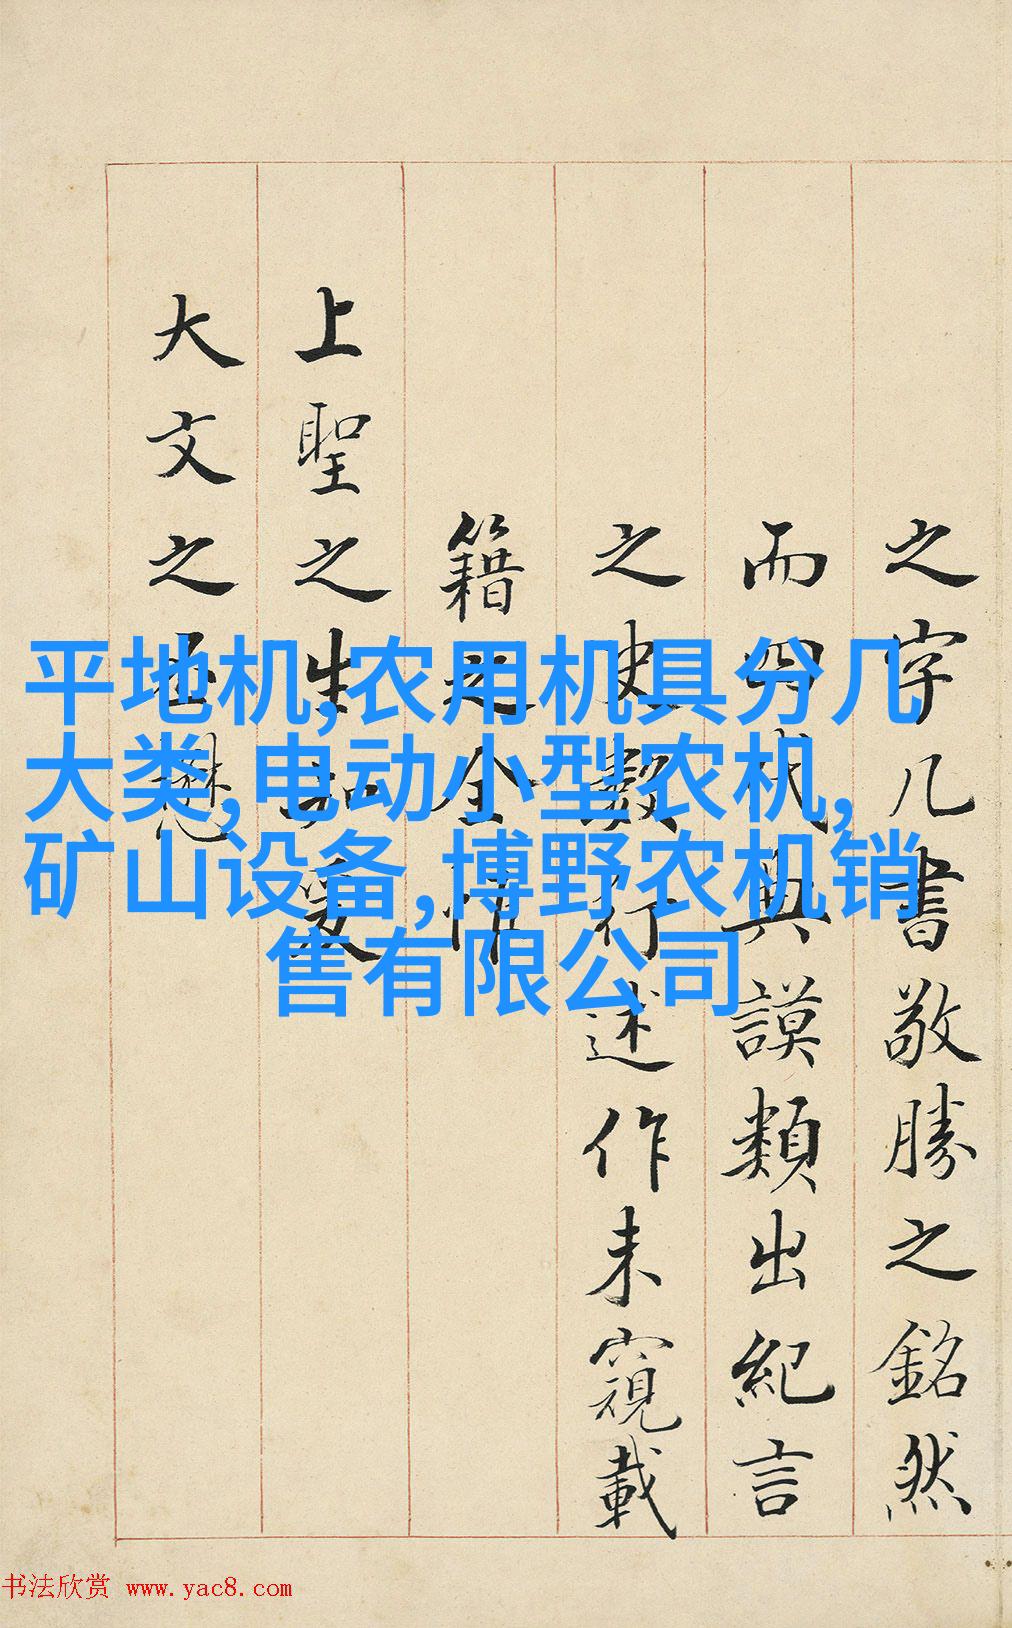 之字几書敬勝之銘然
而四代典謨類出紀言
之史數行述作未窺載
籍之全惟
上聖之生知夐
大文之丕懋
平地机,农用机具分几
大类,电动小型农机,
矿山设备,博野农机销
售有限公司
书法欣赏 www.yac8.com